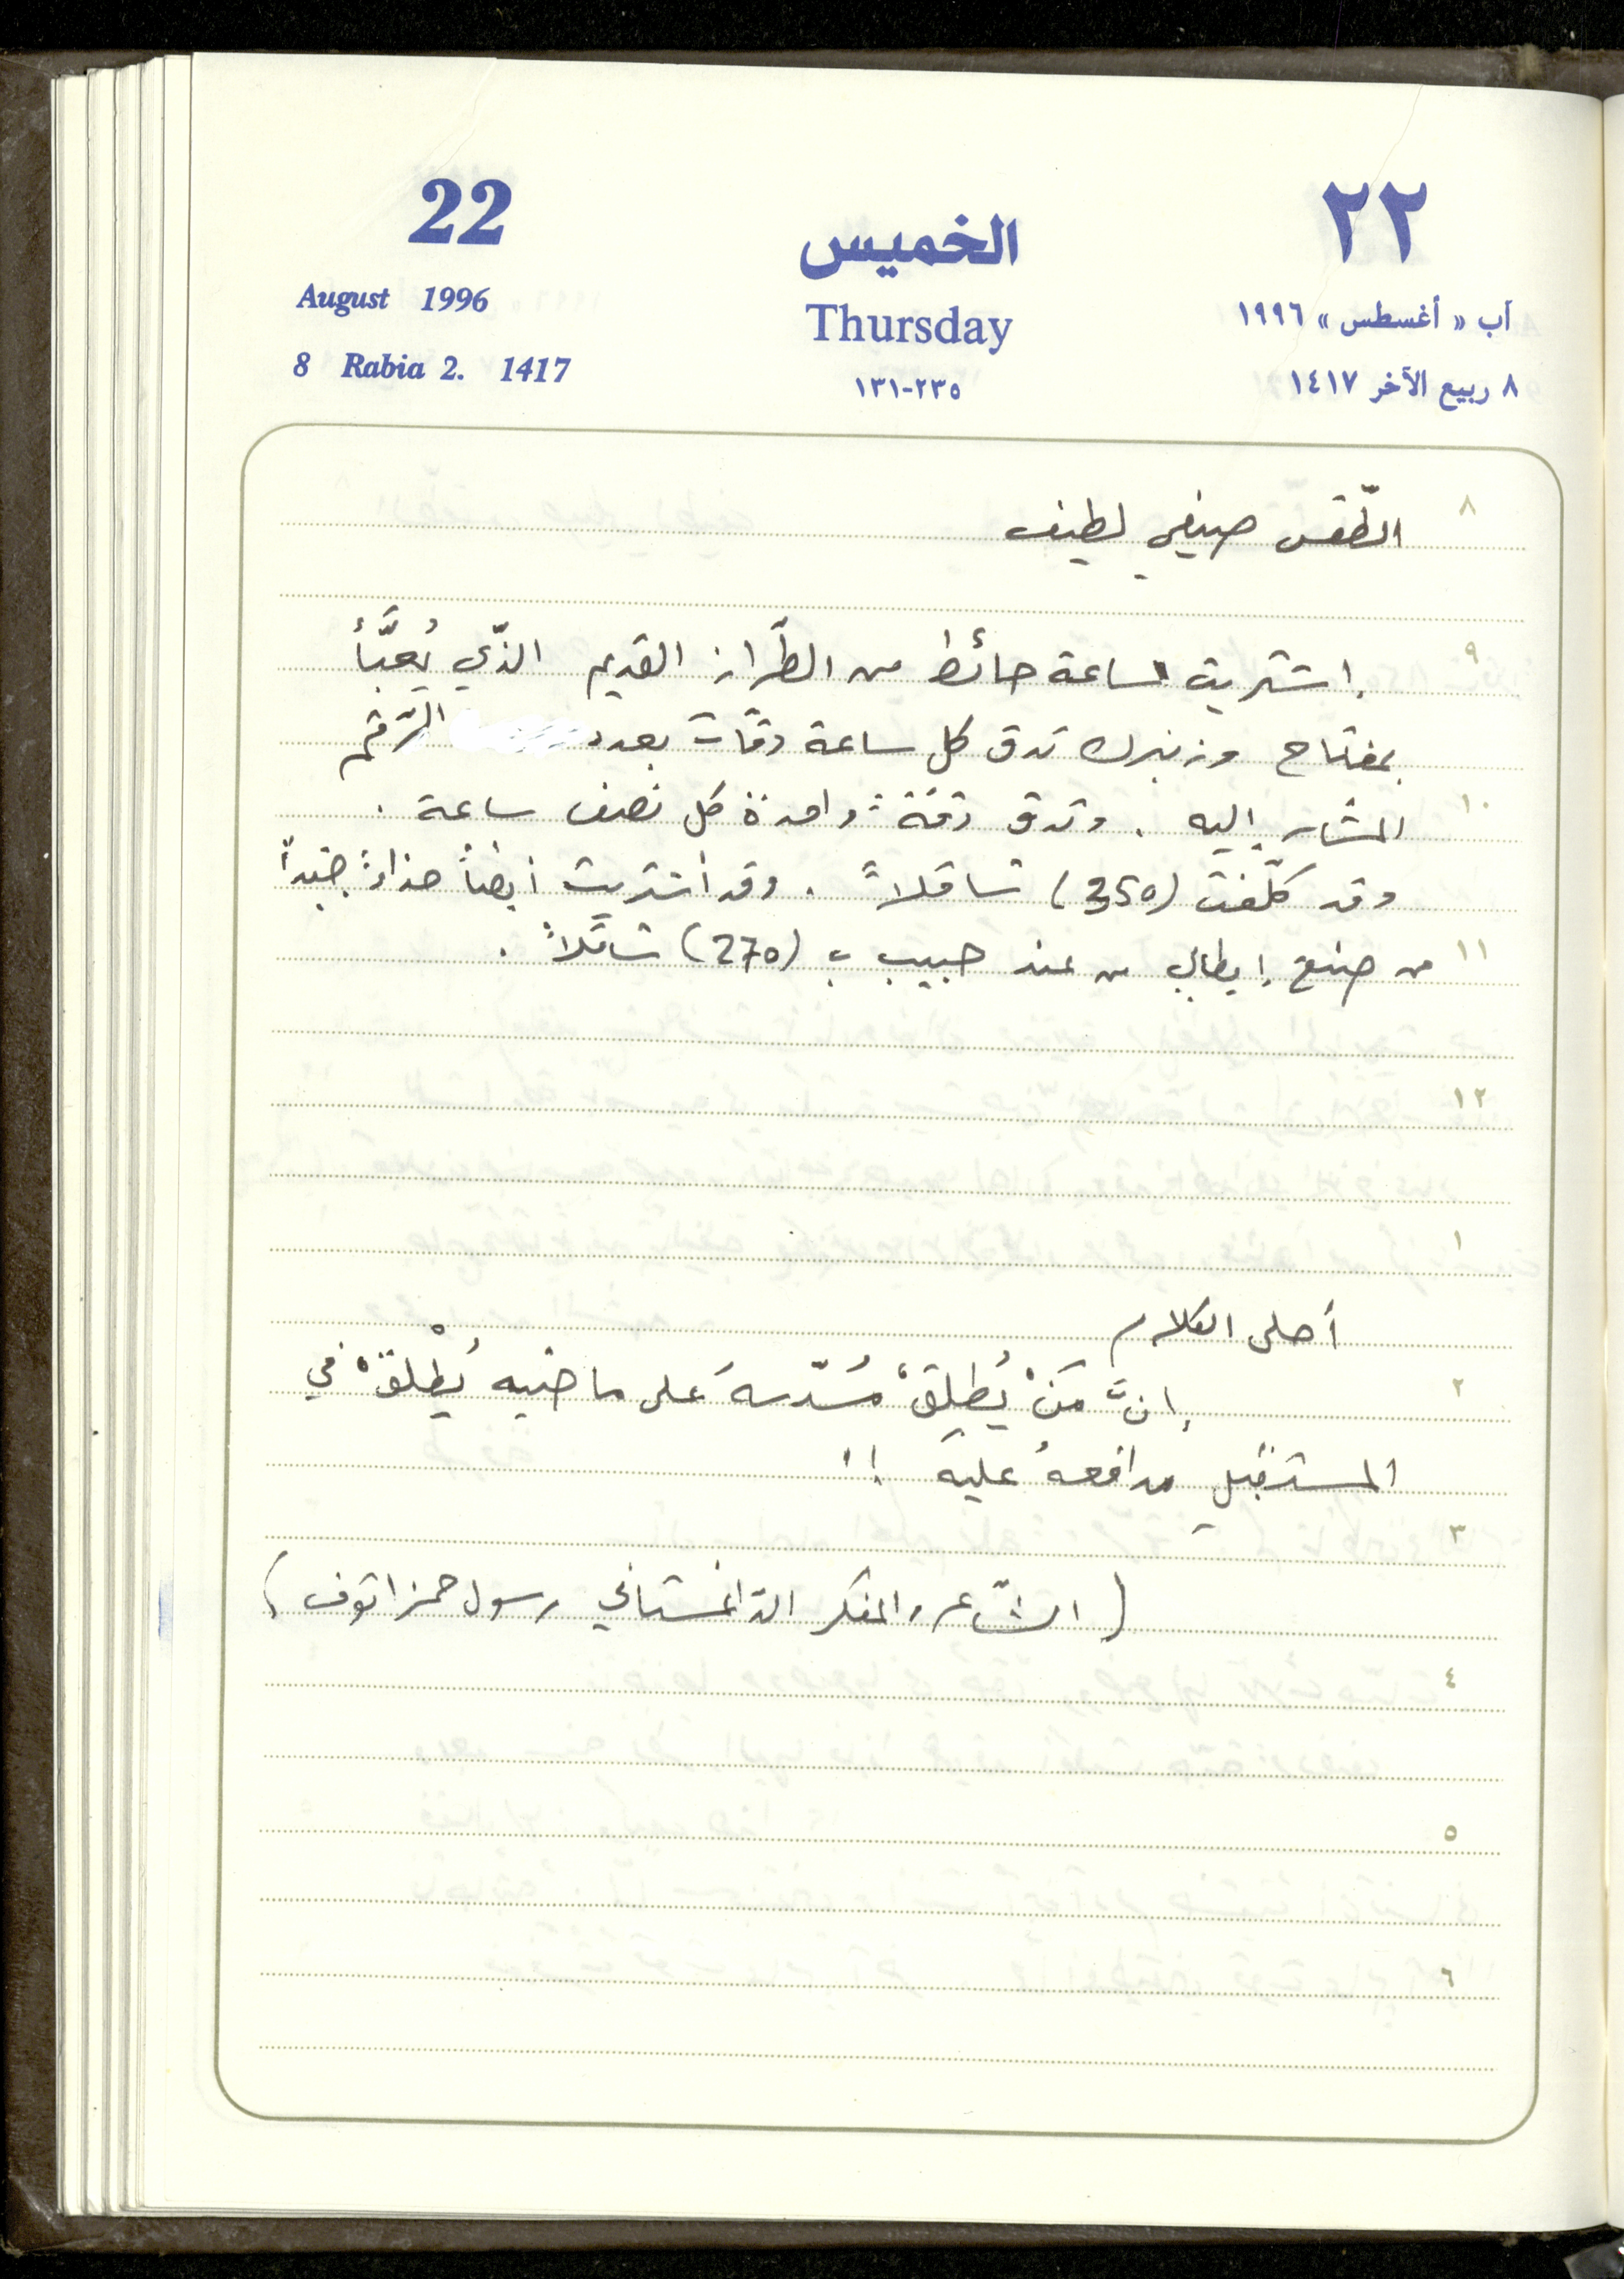 22
الخميس
٢٢
August 1996
Thursday
آب « أغسطس » ١٩٩٦
8 Rabia 2. 1417
٢٣٥-١٣١
٨ ربيع الآخر ١٤١٧
٨
الطّقس صيفي لطيف
٩
إشتريت ساعة حائط من الطّراز القديم الذّي يُعبَّأ
بمفتاح وزنبرك تدق كل ساعة دقّات بعدد الرّقم
١٠
المشار إليه . وتدق دقّة واحدة كل نصف ساعة .
وقد كلّفت (350) شاقلاً . وقد أشتريت أيضاً حذاءً جيّداً
١١
من صنع إيطالي من عند حبيب ب (270) شاقلاً .
١٢
١
أحلى الكلام
٢
إنَّ مَنْ يُطلِقْ مُسدّسهَ على ماضيه يُطْلقْ في
المستقبلِ مدافعهُ عليه !!
٣
(الشّاعر والمفكر الدّاغستاني رسول حمزاتوف)
٤
٥
٦